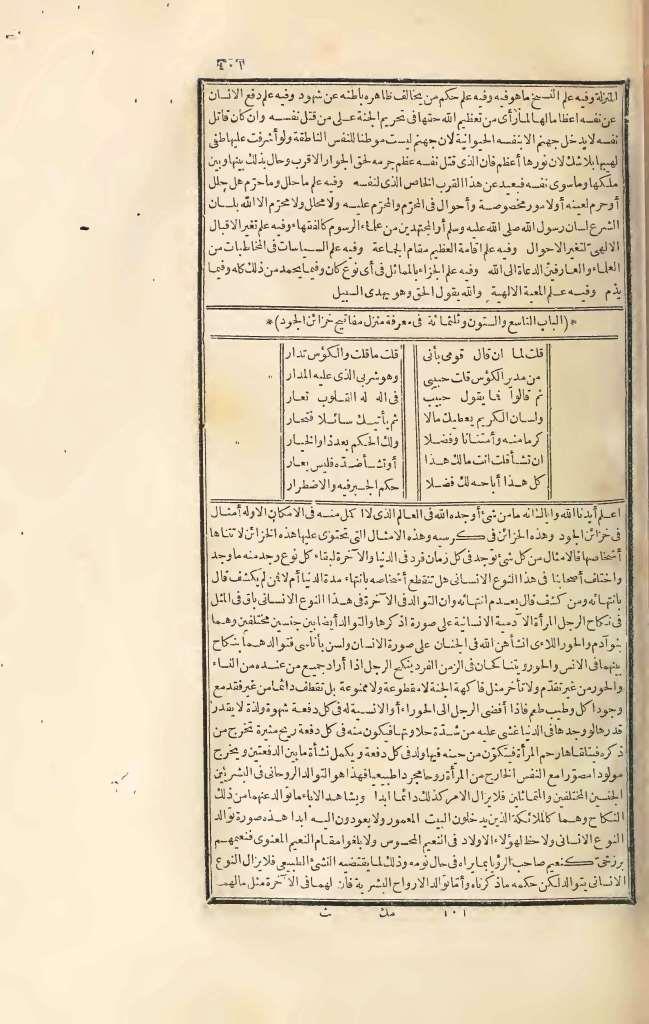 المنزلة وفيه علم النسخ ما هو فيه وفيه علم حكم من يخالف ظاهره باطنه عن شهود وفيه علم دفع الانسان
عن نفسه اعظاما لها لما رأى من تعظيم الله حقها فى تحريم الجنة عـلى من قتل نفسه وان كان قاتل
نفسه لا يدخل جهنم الا بنفسه الحيوانية لان جهنم ليست موطنا للنفس الناطقة ولو أشرفت عليها طفئ
لهيبها بلا شك لان نورها أعظم فان الذى قتل نفسه عظم جرمه لحق الجوار الاقرب وحال بذلك بينها وبين
ملكها وما سوى نفسه فبعيد عن هذا القرب الخاص الذى لنفسه وفيه علم ما حلل وما حرّم هل حلل
أو حرم لعينه أو لامور مخصوصة وأحوال فى المحرّم والمحرّم عليه ولا محلل ولا محرّم الا الله بلسان
الشرع لسان رسول الله صلى الله عليه وسلم أو المجتهدين من علماء الرسوم كالفقهاء وفيه علم تغير الاقبال
الالهى لتغير الاحوال وفيه علم اقامة العظيم مقام الجماعة وفيه علم السياسات فى المخاطبات من
العلماء والعارفين الدعاة الى الله وفيه علم الجزاء بالمماثل فى أى نوع كان وفيما يحمد من ذلك كله وفيما
يذم وفيه عـلم المعية الالهية والله يقول الحق وهو يهدى السبيل
*(الباب التاسع والستون وثلثمائة فى معرفة منزل مفاتيح خزائن الجود)*
قلت لما ان قال قومى بأنى قلت ما قلت والكؤس تدار
من مدير الكؤس قلت حبيبى وهو شربى الذى عليه المدار
ثم قالوا فما يقول حبيب فى اله له القلوب تعار
ولسان الكريم يعطيك مالا ثم يأتيك سائلا فتحار
كرما منه وامتنانا وفضلا ولك الحكم بعد ذا والخيار
ان تشأ قلت انت مالك هذا أو تشأ ضده فليس بعار
كل هذا أباحه لك فضلا حكم الجبر فيه والاضطرار
اعلم أيدنا الله وايّاك انه ما من شئ أوجده الله فى العالم الذى لا اكمل منه فى الامكان الا وله أمثال
فى خزائن الجود وهذه الخزائن فى كرسيه وهذه الامثال التى تحتوى عليها هذه الخزائن لا تتناهى
أشخاصها فالامثال من كل شئ توجد فى كل زمان فرد فى الدنيا والآخرة لبقاء كل نوع وجد منه ما وجد
واختلف أصحابنا فى هذا النوع الانسانى هل تنقطع أشخاصه بانتهاء مدة الدنيا أم لا فمن لم يكشف قال
بانتهائه ومن كشف قال بعدم انتهائه وان التوالد فى الآخرة فى هذا النوع الانسانى باق فى المثل
فى نكاح الرجل المرأة الآدمية الانسانية على صورة اذكرها والتوالد أيضا بين جنسين مختلفين وهما
بنو آدم والحور اللاءى انشأهن الله فى الجنان على صورة الانسان ولسن بأناسى فتوالدهما بنكاح
بينهما فى الانس والحور ويتناكحان فى الزمن الفرد ينكح الرجل اذا أراد جميع من عنده من النساء
والحور من غير تقدّم ولا تأخر مثل فاكهة الجنة لا مقطوعة ولا ممنوعة بل تقطف دائما من غير فقد مع
وجود اكل وطيب طعم فاذا أفضى الرجل الى الحوراء أو الانسية له فى كل دفعة شهوة ولذة لا يقدر
قدرها لو وجدها فى الدنيا غشى عليه من شدّة حلاوتها فيكون منه فى كل دفعة ريح مثيرة تخرج من
ذكره فيتلقاها رحم المرأة فيتكوّن من حينه فيها ولد فى كل دفعة ويكمل نشأة ما بين الدفعتين ويخرج
مولودا مصوّرا مع النفس الخارج من المرأة روحا مجردا طبيعيا فهذا هو التوالد الروحانى فى البشر بين
الجنسين المختلفين والمتماثلين فلا يزال الامر كذلك دائما أبدا ويشاهد الاباء ما تولد عنهما من ذلك
النكاح وهما كالملائكة الذين يدخلون البيت المعمور ولا يعودون اليه ابدا هذه صورة توالد
النوع الانسانى ولا حظ لهؤلاء الاولاد فى النعيم المحسوس ولا بلغوا مقام النعيم المعنوى فنعيمهم
برزخى كنعيم صاحب الرؤيا بما يراه فى حال نومه وذلك لما يقتضيه النشئ الطبيعى فلا يزال النوع
الانسانى يتوالد لكن حكمه ما ذكرناه وأمّا توالد الارواح البشرية فان لهما فى الآخرة مثل ما لهما
١٠١ مك ث